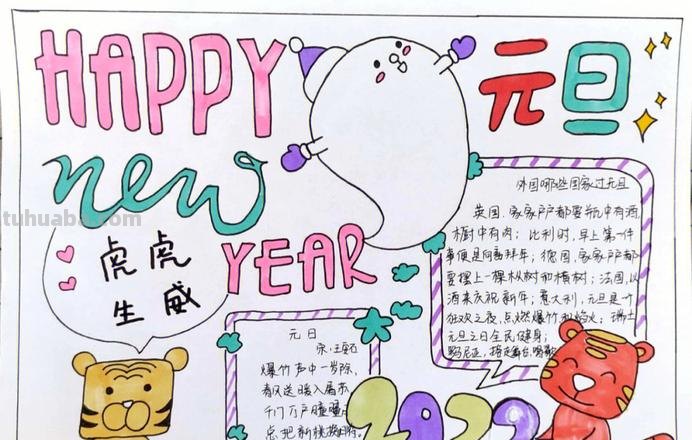 HAPPY
元旦
new
YEAR
tuhuaba.com
虎虎
生威
外国哪些国家过元旦
英国,家家户户都要瓶中有酒,
橱中有肉;比利时,早上第一件
事便是向畜拜年;德国,家家户户都
要摆上一棵枞树和横树;法国,以
酒来庆祝新年;意大利,元旦是一个
狂欢之夜,点燃爆竹和焰火;瑞士
元旦之日全民健身;
元日
宋·王安石
爆竹声中一岁除,
春风送暖入屠苏
千门万户曈曈日
总把新桃换旧符。
2022